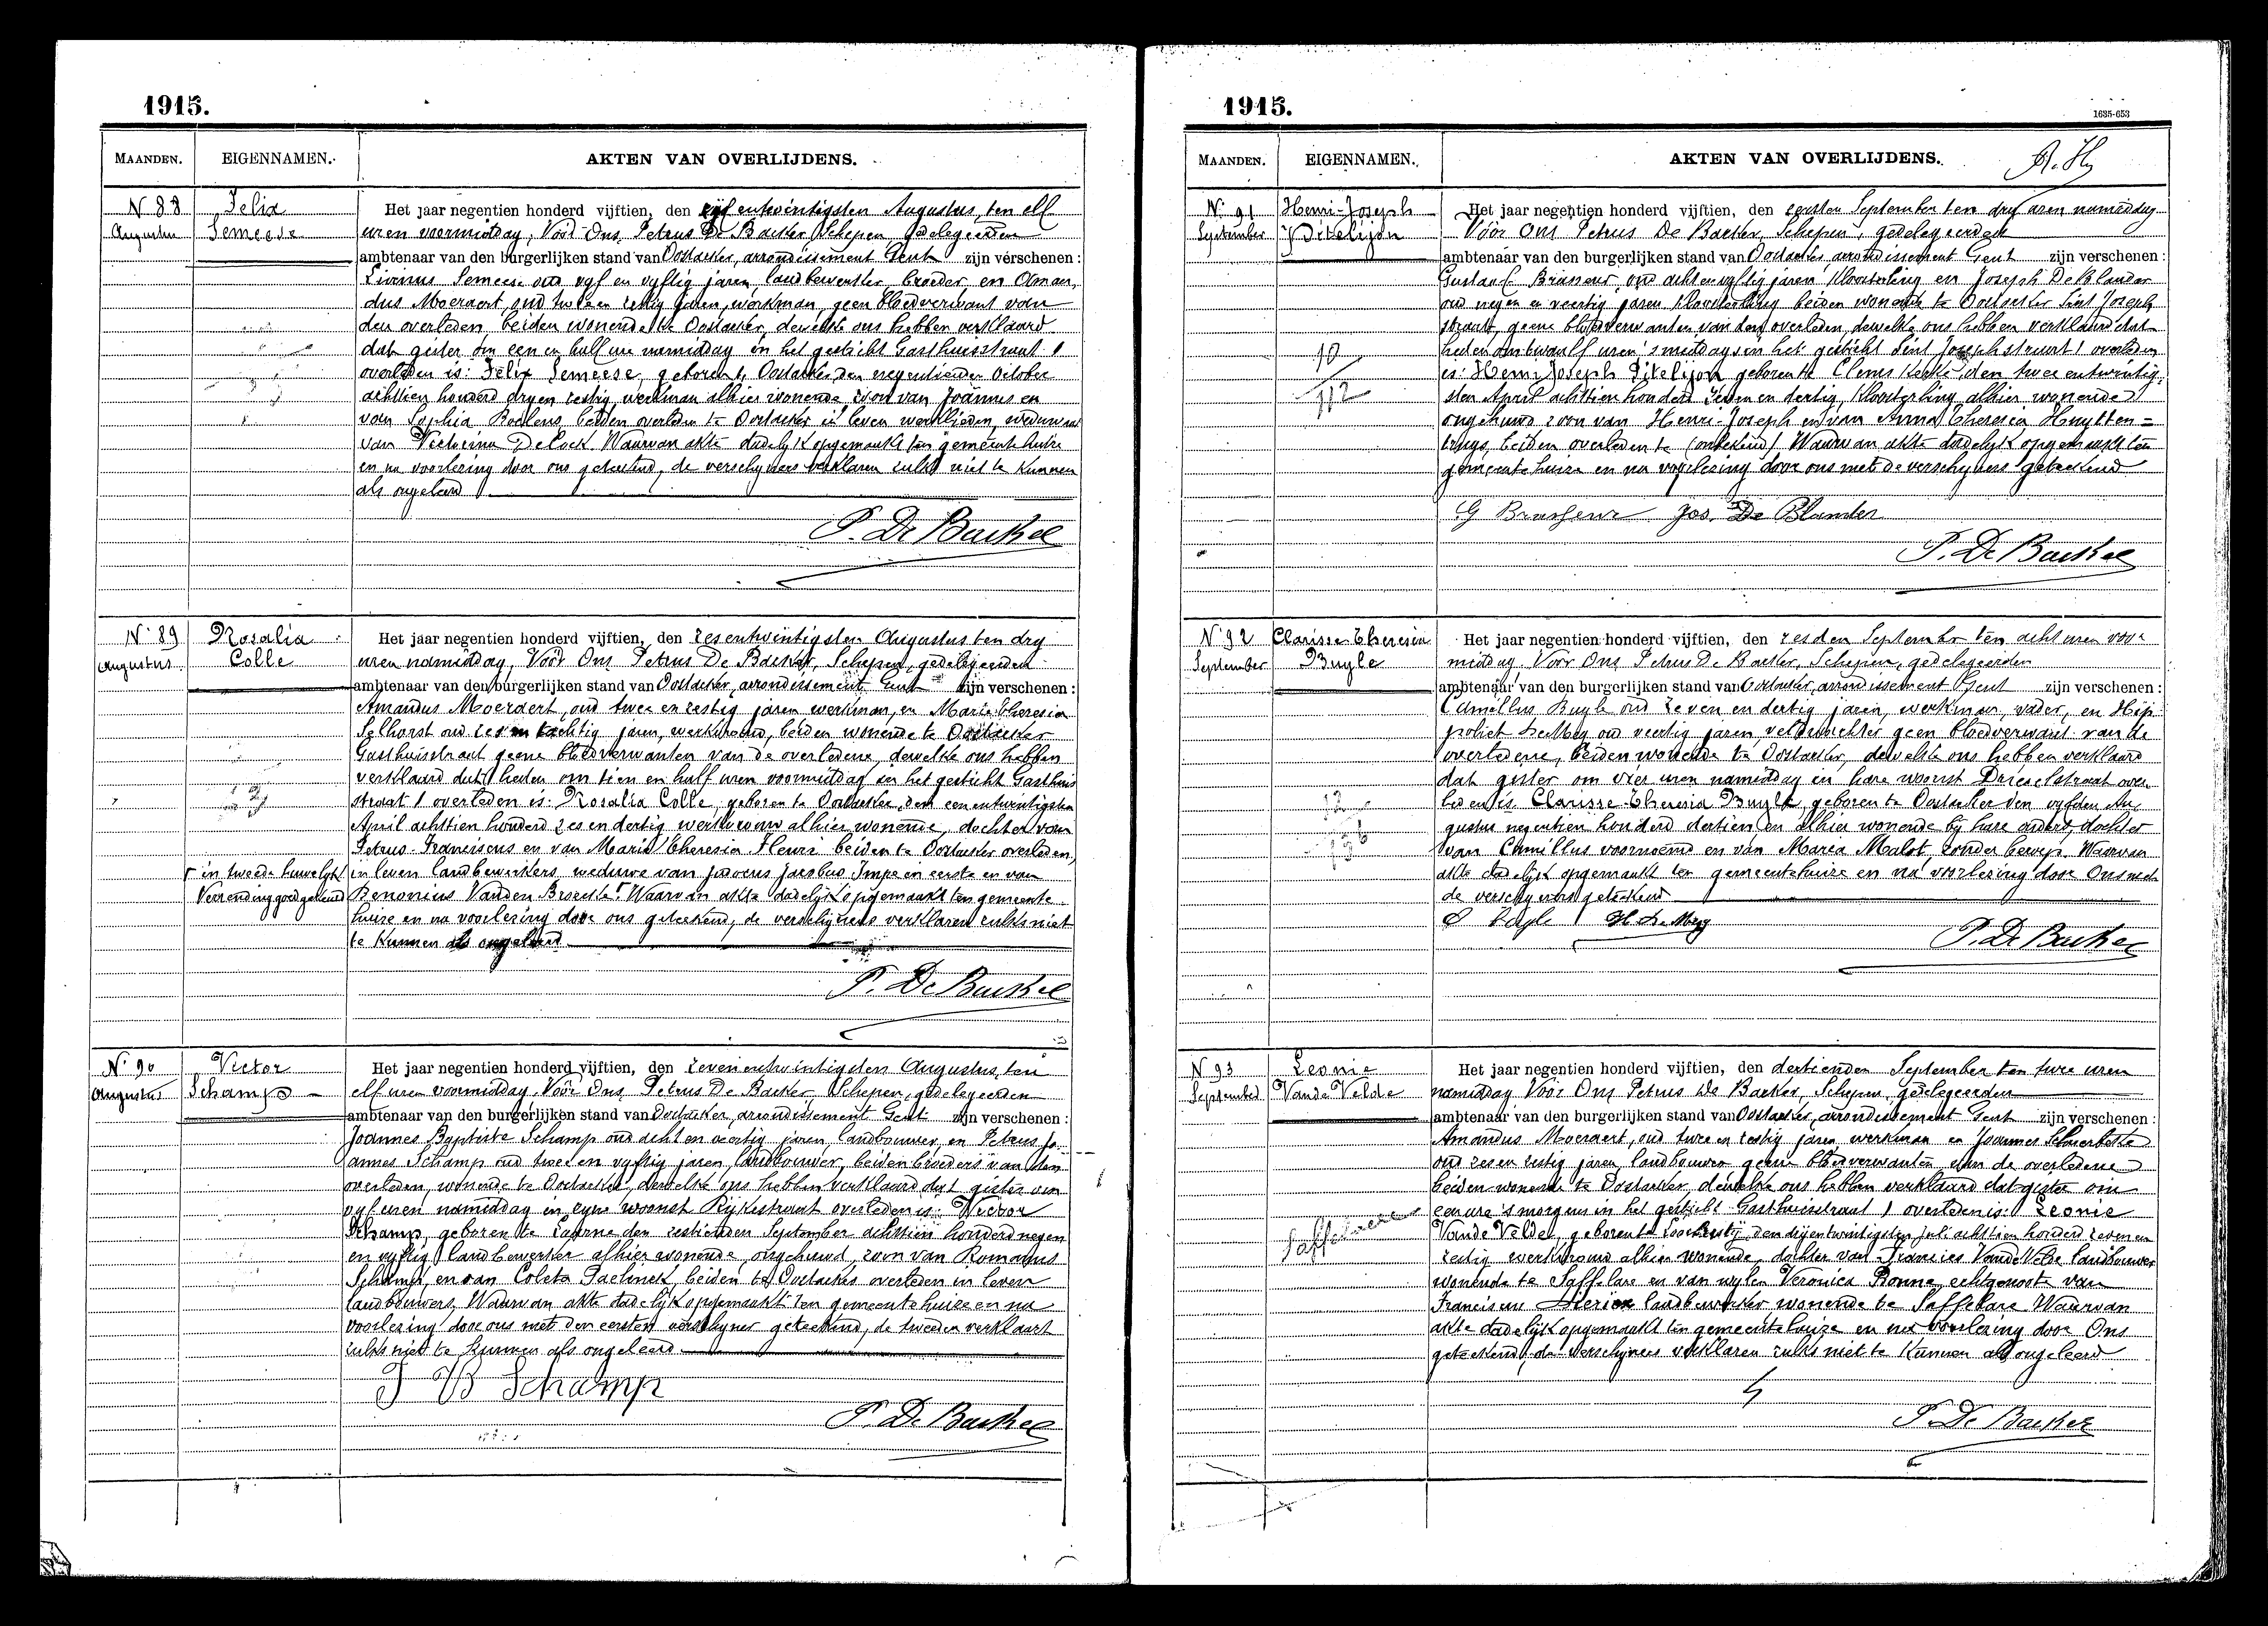 1915.
MAANDEN. EIGENNAMEN. AKTEN VAN OVERLIJDENS.
N 88 Felix
Augustus Semeese
Het jaar negentien honderd vijftien, den vijf entwintigsten Augustus, ten elf
uren voormiddag, Vóór Ons, Petrus De Backer Schepen gedelegeerden
ambtenaar van den burgerlijken stand van Oostacker, arrondissement Gent zijn verschenen:
Livinus Semeese oud vyf en vyftig jaren, landbewerker, broeder, en Aman,
dus Moeraert, oud twee en zestig jaren, werkman, geen bloedverwant van
den overleden, beiden wonende te Oostacker, dewelke ons hebben verklaard
dat gister om een en half ure namiddag in het gesticht Gasthuisstraat 1
overleden is: Felix Semeese, geboren te Oostacker, den negentienden October
achttien honderd dry en zestig, werkman alhier wonende zoon van Joannes en
van Sophia Roelens, beiden overleden te Oostacker in leven werklieden, weduwnaar
van Victorina De Cock. Waarvan akte dadelyk opgemaakt ten gemeente huize
en na voorlezing door ons geteekend, de verschyners verklaren zulks niet te kunnen
als ongeleerd
P. De Backer
N° 89 Rosalia
Augustus Colle
Het jaar negentien honderd vijftien, den zesentwintigsten Augustus ten dry
uren namiddag, Vóór Ons Petrus De Backer, Schepen, gedelegeerden
ambtenaar van den burgerlijken stand van Oostacker, arrondissement Gent zijn verschenen:
Amandus Moeraert, oud twee en zestig jaren werkman, en Marie Theresia
Selhorst oud zes en tachtig jaren, werkvrouw, beiden wonende te Oostacker
Gasthuisstraat geene bloedverwanten van de overledene, dewelke ons hebben
verklaard dat heden om tien en half uren voormiddag in het gesticht Gasthuis
straat 1 overleden is: Rosalia Colle, geboren te Oostacker den eenentwintigsten
April achttien honderd zes en dertig werkvrouw alhier wonende, dochter van
Petrus-Franciscus en van Marie Theresia Fleurie beiden te Oostacker overleden,
in leven landbewerkers, weduwe van Judocus Jacobus Impe in eerste en van
Γ in tweede huwelijk
Benonius Vanden Broecke Γ Waarvan akte dadelijk opgemaakt ten gemeente
Verzending goedgekeurd
huize en na voorlezing door ons geteekend, de verschijners verklaren zulks niet
te kunnen als ongeleerd
P. De Backer
N° 90 Victor
Augustus Schamp
Het jaar negentien honderd vijftien, den zevenentwintigsten Augustus, ten
elf uren voormiddag Vóór Ons, Petrus De Backer, Schepen, gedelegeerden
ambtenaar van den burgerlijken stand van Oostacker, arrondissement Gent zijn verschenen:
Joannes Baptiste Schamp oud acht en veertig jaren, landbouwer, en Petrus Jo-
annes Schamp oud twee en vyftig jaren, landbouwer, beiden broeders van den
overleden, wonende te Oostacker, dewelke ons hebben verklaard dat gister om
vyf uren namiddag in zyne woonst Rijkestraat overleden is: Victor
Schamp, geboren te Laarne den zestienden September achttien honderd negen
en vyftig landbewerker alhier wonende, ongehuwd, zoon van Romanus
Schamp, en van Coleta Paelinck, beiden te Oostacker overleden in leven
landbouwers, Waarvan akte dadelijk opgemaakt ten gemeentehuize en na
voorlezing door ons met den eersten verschyner geteekend, de tweeden verklaart
zulks niet te kunnen als ongeleerd
J B Schamp
P. De Backer
1915.
1635-653
MAANDEN. EIGENNAMEN. AKTEN VAN OVERLIJDENS.
N° 91 Henri-Joseph
September Pitelijon
Het jaar negentien honderd vijftien, den eersten September ten dry uren namiddag
Vóór Ons Petrus De Backer, Schepen, gedelegeerden
ambtenaar van den burgerlijken stand van Oostacker, arrondissement Gent zijn verschenen:
Gustaaf Brasseur, oud achtenvyftig jaren, kloosterling en Joseph De Blander
oud negen en veertig jaren kloosterling beiden wonende te Oostacker Sint Joseph
straat, geene bloedverwanten van den overleden, dewelke ons hebben verklaard dat
heden om twaalf uren 's middags in het gesticht Sint Josephstraat 1 overleden
is: Henri Joseph Pitelijon geboren te Clemskerke den twee entwintig,
sten April achttien honderd zeven en dertig, kloosterling alhier wonende
ongehuwd zoon van Henri-Joseph en van Anna Theresia Huytten=
brugs, beiden overleden te (onbekend). Waarvan akte dadelyk opgemaakt ten
gemeente huize en na voorlezing door ons met de verschyners geteekend
10
112
G Brasseur Jos. De Blander
P. De Backer
N° 92 Clarisse-Theresia
September Buyle
Het jaar negentien honderd vijftien, den zesden September ten acht uren voor
middag Vóór Ons Petrus De Backer, Schepen, gedelegeerden
ambtenaar van den burgerlijken stand van Oostacker, arrondissement Gent zijn verschenen:
Camillus Buyle oud zeven en dertig jaren, werkman, vader, en Hip-
poliet De Mey oud veertig jaren, veldwachter geen bloedverwant van de
overledene, beiden wonende te Oostacker, dewelke ons hebben verklaard
dat gister om vier uren namiddag in hare woonst Drieselstraat over-
leden is Clarisse-Theresia Buyle, geboren te Oostacker den vyfden Au-
gustus negentien honderd dertien en alhier wonende bij hare ouders, dochter
van Camillus voornoemd en van Maria Malot, zonder beroep. Waarvan
akte dadelijk opgemaakt ten gemeentehuize en na voorlezing door Ons met
de verschyners geteekend
C Buyle H. De Mey
P. De Backer
N° 93 Leonie
September Vande Velde
Het jaar negentien honderd vijftien, den dertienden September ten twee uren
namiddag Vóór Ons Petrus De Backer, Schepen, gedelegeerden
ambtenaar van den burgerlijken stand van Oostacker, arrondissement Gent zijn verschenen:
Amandus Moeraert, oud twee en zestig jaren werkman en Joannes
oud zes en zestig jaren, landbouwer geene bloedverwanten van de overledene
beiden wonende te Oostacker dewelke ons hebben verklaard dat gister om
eenure 's morgens in het gesticht Gasthuisstraat 1 overleden is: Leonie
Vande Velde, geboren te Loochristij, den drijentwintigsten Juli achttien honderd zeven en
zestig werkvrouw alhier wonende, dochter van Francies Vande Velde landbouwer
wonende te Saffelare en van wylen Veronica Bonne, echtgenoote van
Franciscus Dierick landbewerker wonende te Saffelare Waarvan
akte dadelijk opgemaakt ten gemeentehuize en na voorlezing door Ons
geteekend, de verschijners verklaren zulks niet te kunnen als ongeleerd
P. De Backer